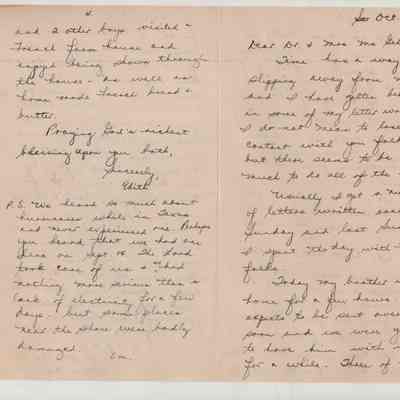 4
and 2 other boys visited a
French farm house and
enjoyed being shown through
the house - as well as
home made French bread &
butter.
Praying God's richest
blessing upon you both,
Sincerely,
Edith
P.S. We heard so much about
hurricanes while in Texas
and never experienced one. Perhaps
you heard that we had one
here on Sept 14. The Lord
took care of us & had
nothing more serious than a
lack of electricity for a few
days - but some places
near the shore were badly
damaged.
Em.
So Oct
Dear Dr. & Mrs Mc
Time has a way
slipping away from
and I have gotten
in some of my letter
I do not mean to lose
contact with you
but there seems to be
much to do all of the
Usually I get a
of letters written
Sunday and last
I spent the day with
folks.
Today my brother
home for a few hours.
expects to be sent over
soon and we were
to have him with
for a while. Three of